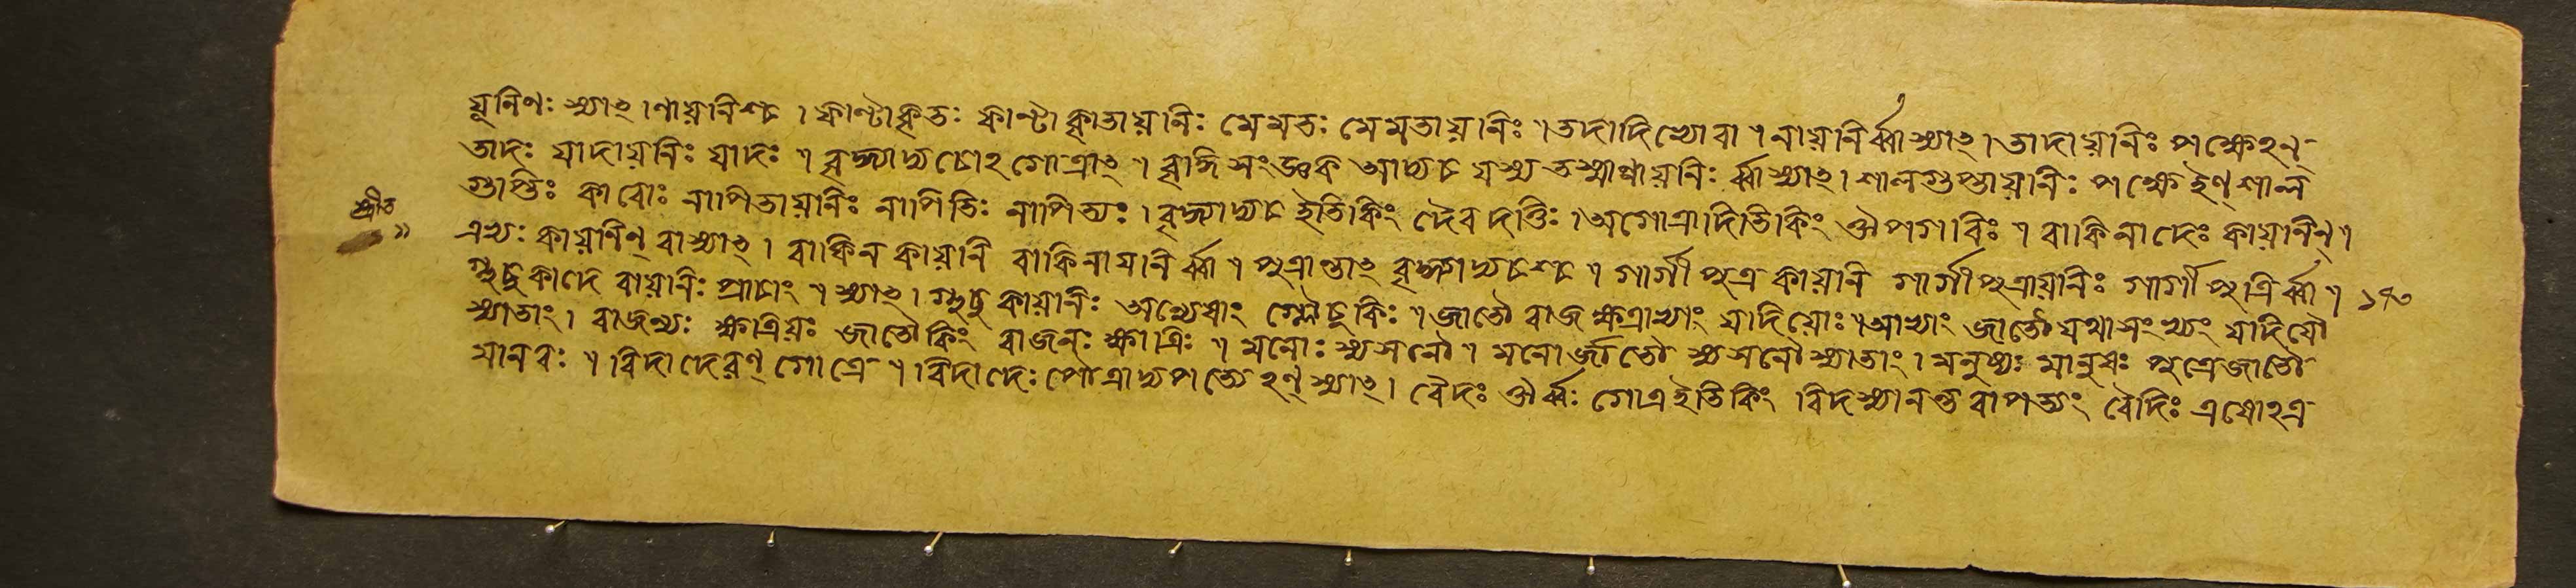 যূনিণঃ স্যাৎ।ণায়নিশ্চ। ফান্টাকৃতঃ ফান্টাকৃতায়নিঃ মৈমতঃ মৈমতায়নিঃ।তদাদিষ্যোবা। নায়নির্ব্বাস্যাৎ।তাদায়নিঃ পক্ষেঽন্
তাদঃ যাদায়নিঃ যাদঃ। বৃদ্ধাদ্যচোঽগোত্রাৎ। বৃদ্ধিসংজ্ঞক আদ্যচ যস্য তস্মাণায়নিঃ র্ব্বাস্যাৎ।শালগুপ্তায়নিঃ পক্ষে ইণ্ শাল
গুপ্তিঃ কাবোঃ নাপিতায়নিঃ নাপিতিঃ নাপিত্যঃ।বৃদ্ধাদ্যচ ইতিকিং দৈবদত্তিঃ।অগোত্রাদিতিকিং ঔপগবিঃ। বাকিনাদেঃ কায়নিন্।
এভ্যঃ কায়নিন্ বাস্যাৎ। বাকিনকায়নি বাকিনায়নি র্ব্বা। পুত্রান্তাৎ বৃদ্ধাদ্যচশ্চ। গার্গীপুত্রকায়নি গার্গীপুত্রায়নিঃ গার্গীপুত্রির্ব্বা।
গ্লুচুকাদে বায়নিঃ প্রাচাং। স্যাৎ। গ্লুচুকায়নিঃ অন্যেষাং গ্লৌচুকিঃ।জাতৌ রাজক্ষত্রাভ্যাং যাদিয়োঃ।আভ্যাং জাতৌ যথাসংখ্যং যাদিয়ৌ
স্যাতাং। রাজন্যঃ ক্ষত্রিয়ঃ জাতৌকিং রাজনঃ ক্ষাত্রিঃ। মনোঃ ষ্যসনৌ। মনোর্জাতৌ ষ্যসনৌস্যাতাং।মনুষ্যঃ মানুষঃ পুত্রেজাতৌ
মানবঃ। বিদাদেরণ্ গোত্রে। বিদাদেঃ পৌত্রাদ্যপত্যেঽণ্ স্যাৎ। বৈদঃ ঔর্ব্বঃ গোত্রইতিকিং বিদস্যানন্তরাপত্যং বৈদিঃ এষোঽত্র
শ্রীত
১৭৩